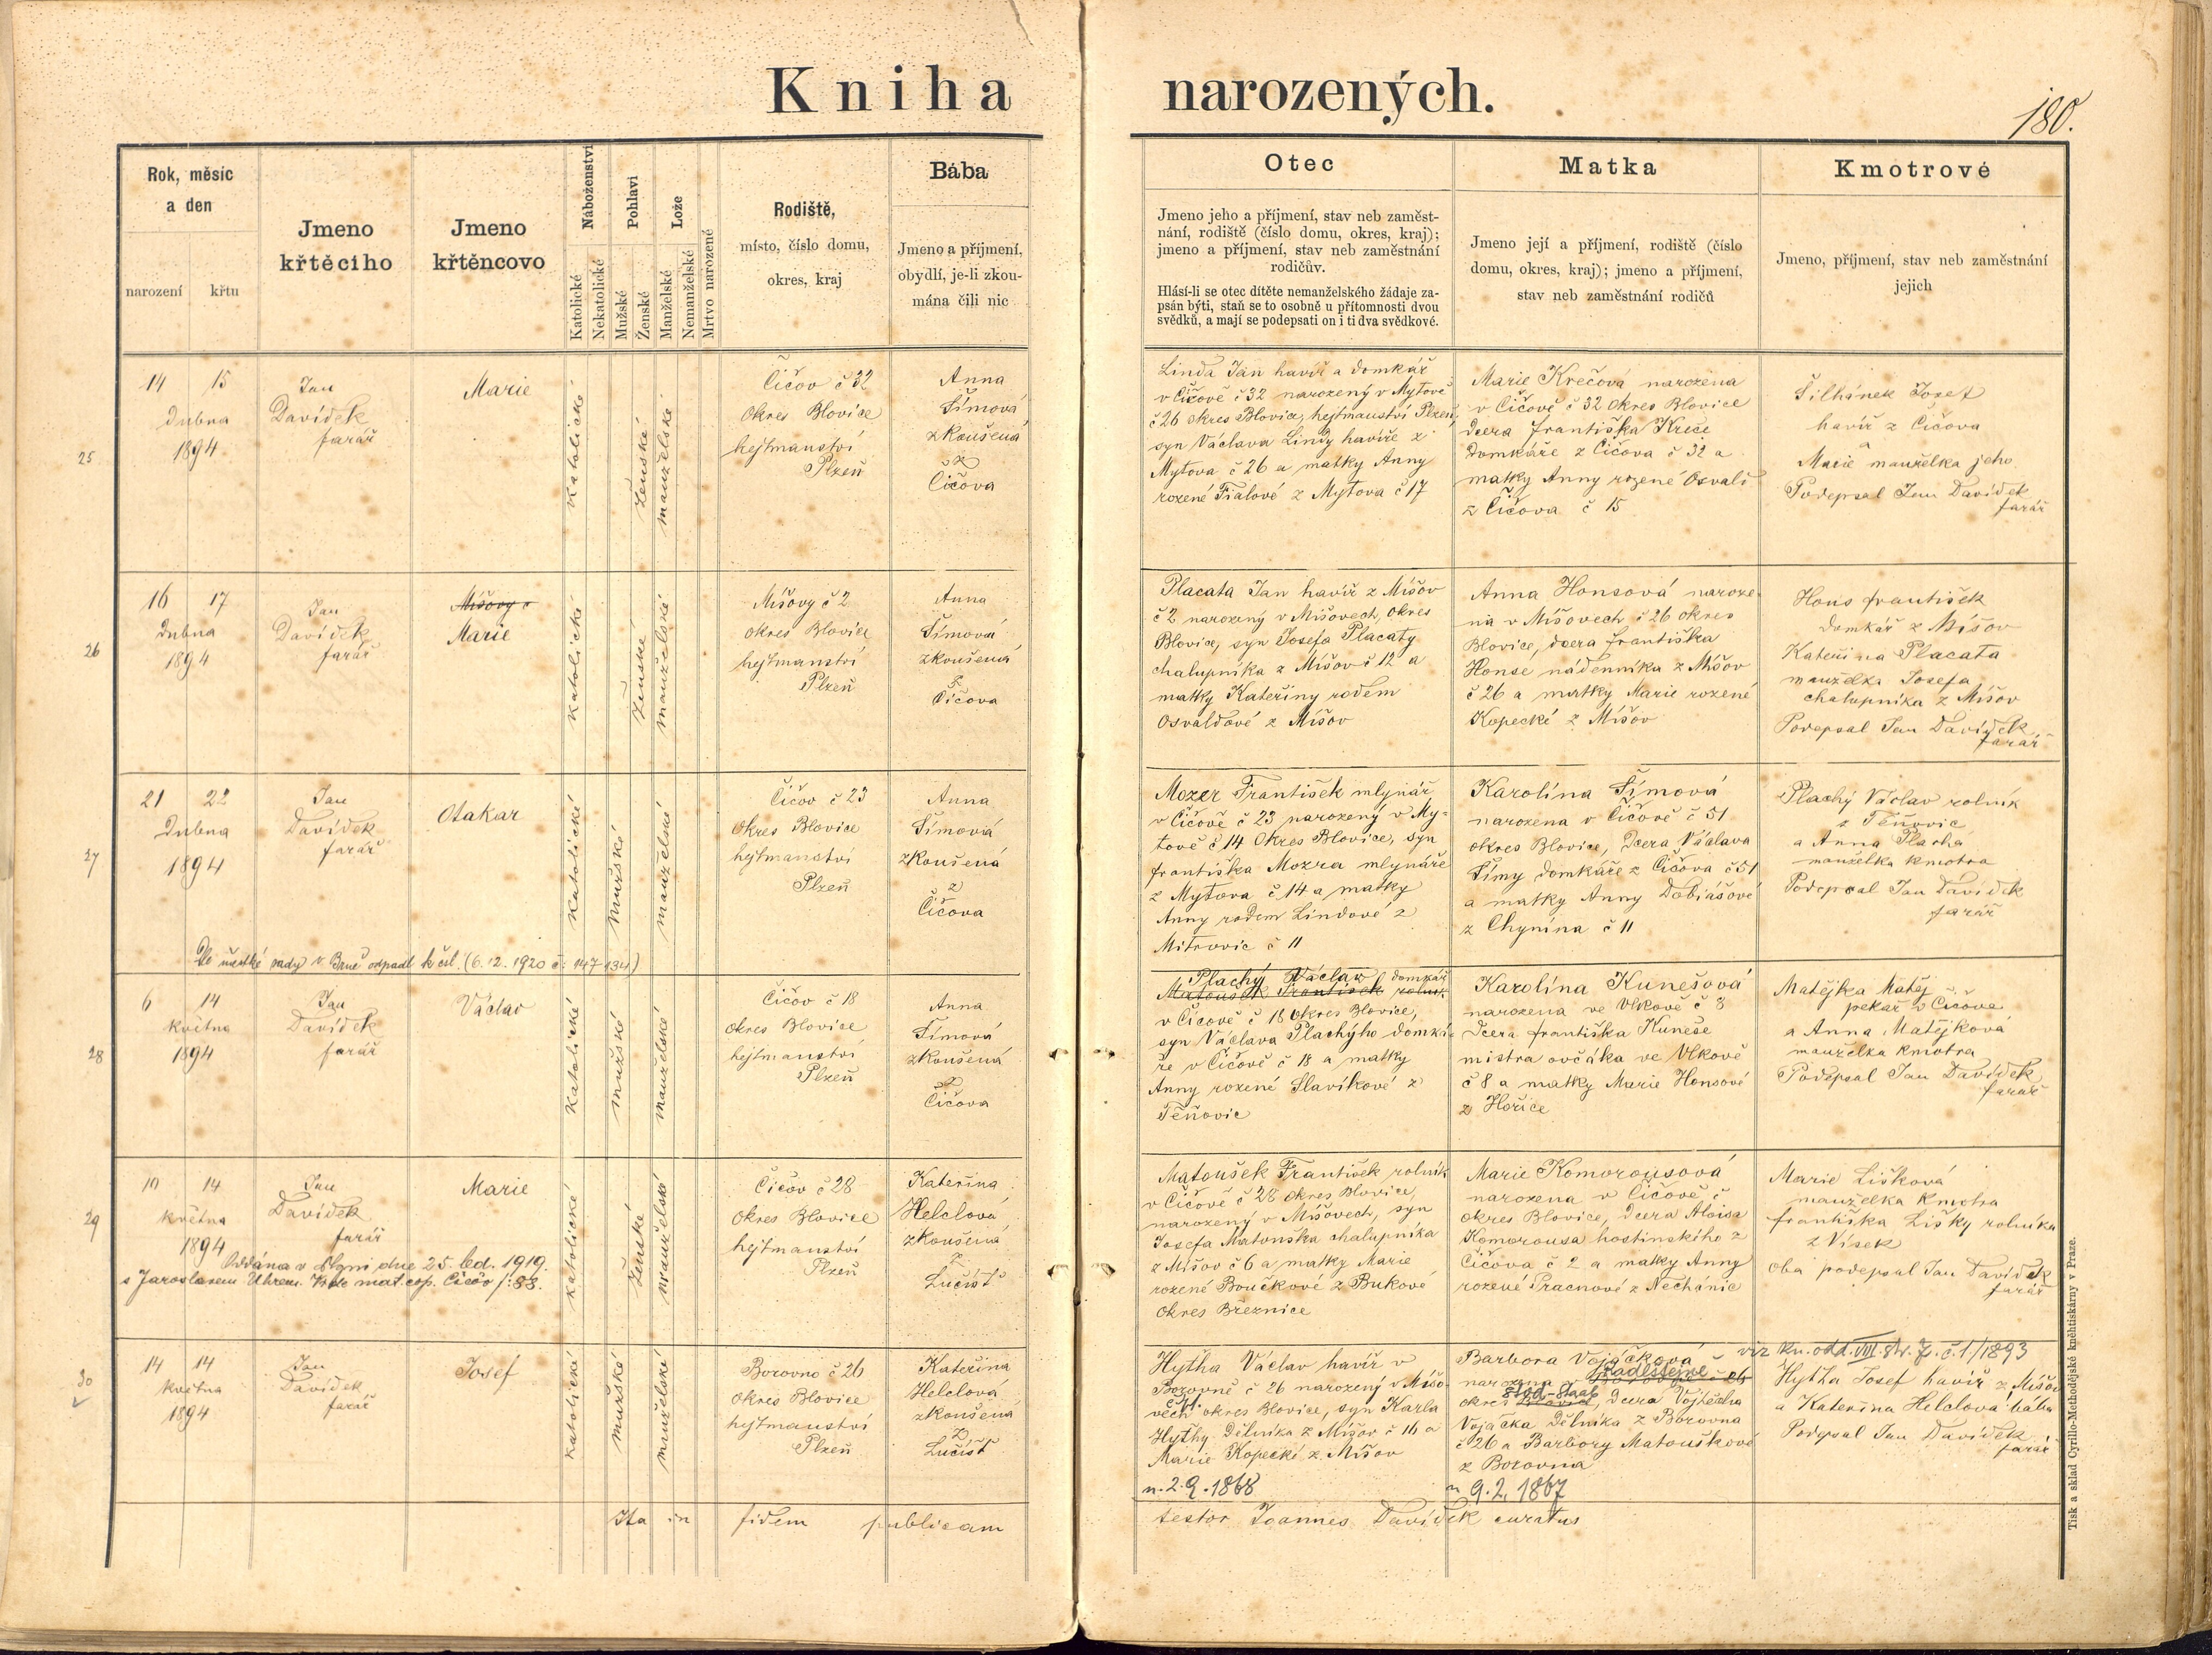 Kniha narozených.
180.
Rok, měsíc
a den
narození
křtu
Jmeno
křtěcího
Jmeno
křtěncovo
Náboženství
Katolické
Nekatolické
Pohlaví
Mužské
Ženské
Lože
Manželské
Nemanželské
Mrtvo narozené
Rodiště,
místo, číslo domu,
okres, kraj
Bába
Jmeno a příjmení,
obydlí, je-li zkou-
mána čili nic
Otec
Jmeno jeho a příjmení, stav neb zaměst-
nání, rodiště (číslo domu, okres, kraj);
jmeno a příjmení, stav neb zaměstnání
rodičův.
Hlásí-li se otec dítěte nemanželského žádaje za-
psán býti, staň se to osobně u přítomnosti dvou
svědků, a mají se podepsati on i ti dva svědkové.
Matka
Jmeno její a příjmení, rodiště (číslo
domu, okres, kraj); jmeno a příjmení,
stav neb zaměstnání rodičů
Kmotrové
Jmeno, příjmení, stav neb zaměstnání
jejich
25
14 15
Dubna
1894
Jan
Davídek
farář
Marie
katolické
ženské
manželské
Čičov č 32
Okres Blovice
hejtmanství
Plzeň
Anna
Šímová
zkoušená
z
Čičova
Linda Jan havíř a domkář
v Čičově č 32 narozený v Mytově
č 26 okres Blovice, hejtmanství Plzeň,
syn Václava Lindy havíře z
Mytova č 26 a matky Anny
rozené Fialové z Mytova č 17
Marie Krečová narozena
v Čičově č 32 Okres Blovice
dcera františka Kreče
domkáře z Čičova č 32 a
matky Anny rozené Osvald
z Čičova č 15
Šilhánek Josef
havíř z Čičova
a
Marie manželka jeho
Podepsal Jan Davídek
farář
26
16 17
Dubna
1894
Jan
Davídek
farář
Míšovy č
Marie
katolické
ženské
manželské
Míšovy č 2
okres Blovice
hejtmanství
Plzeň
Anna
Šímová
zkoušená
z
Čičova
Placata Jan havíř z Míšov
č 2 narozený v Míšovech, okres
Blovice, syn Josefa Placaty
chalupníka z Míšov č 12 a
matky Kateřiny rodem
Osvaldové z Míšov
Anna Honsová naroze
na v Míšovech č 26 okres
Blovice, dcera františka
Honse nádenníka z Míšov
č 26 a matky Marie rozené
Kopecké z Míšov
Hons františek
domkář z Míšov
Kateřina Placata
manželka Josefa
chalupníka z Míšov
Podepsal Jan Davídek
farář
27
21 22
Dubna
1894
Jan
Davídek
farář
Otakar
katolické
mužské
manželské
Čičov č 23
Okres Blovice
hejtmanství
Plzeň
Anna
Šímová
zkoušená
z
Čičova
Mozer František mlynář
v Čičově č 23 narozený v My-
tově č 14 Okres Blovice, syn
františka Mozra mlynáře
z Mytova č 14 a matky
Anny rodem Lindové z
Mitrovic č 11
Karolína Šímová
narozena v Čičově č 51
okres Blovice, Dcera Václava
Šímy domkáře z Čičova č 51
a matky Anny Dobiášové
z Chynína č 11
Plachý Václav rolník
z Těňovic
a Anna Plachá
manželka kmotra
Podepsal Jan Davídek
farář
Dle městské rady v Brně odpadl k čsl. (6.12.1920 č: 147 134)
28
6 14
května
1894
Jan
Davídek
farář
Václav
katolické
mužské
manželské
Čičov č 18
Okres Blovice
hejtmanství
Plzeň
Anna
Šímová
zkoušená
z
Čičova
Plachý Václav domkář
Matoušek František rolník
v Čičově č 18 okres Blovice,
syn Václava Plachýho domká-
ře v Čičově č 18 a matky
Anny rozené Slavíkové z
Těňovic
Karolína Kunešová
narozena ve Vlkově č 8
dcera františka Kuneše
mistra ovčáka ve Vlkově
č 8 a matky Marie Honsové
z Hořice
Matějka Matěj
pekař v Čičově
a Anna Matějková
manželka kmotra
Podepsal Jan Davídek
farář
29
10 14
května
1894
Jan
Davídek
farář
Marie
katolické
ženské
manželské
Čičov č 28
Okres Blovice
hejtmanství
Plzeň
Kateřina
Helclová
zkoušená
z
Lučišť
Matoušek František rolník
v Čičově č 28 okres Blovice,
narozený v Míšovech, syn
Josefa Matouška chalupníka
z Míšov č 6 a matky Marie
rozené Boučkové z Bukové
Okres Březnice
Marie Komorousová
narozena v Čičově č
okres Blovice, dcera Aloisa
Komorousa hostinského z
Čičova č 2 a matky Anny
rozené Pracnové z Nechánic
Marie Lišková
manželka kmotra
františka Lišky rolníka
z Vísek
oba podepsal Jan Davídek
farář
Oddána v Plzni dne 25. led. 1919.
s Jaroslavem Uhrem. Vide mat. cop. Čičov f. 83.
30
14 14
května
1894
Jan
Davídek
farář
Josef
katolické
mužské
manželské
Borovno č 26
Okres Blovice
hejtmanství
Plzeň
Kateřina
Helclová
zkoušená
z
Lučišť
Hytha Václav havíř v
Borovně č 26 narozený v Míšo-
vech okres Blovice, syn Karla
Hythy Dělníka z Míšov č 16 a
Marie Kopecké z Míšov
n. 2.9.1868
Barbora Vojáčková
narozena v Borovně č 26
Radlštejně
Stod-Staab
okres Blovice, dcera Vojtěcha
Vojáčka Dělníka z Borovna
č 26 a Barbory Matouškové
z Borovna
n 9.2.1867
viz kn. odd. VIII. str. 7. č. 1/1893
Hytha Josef havíř z Míšov
a Kateřina Helclová bába
Podepsal Jan Davídek
farář
Ita in fidem publicam
testor Joannes Davídek curatus
Tisk a sklad Cyrillo-Methodějské knihtiskárny v Praze.